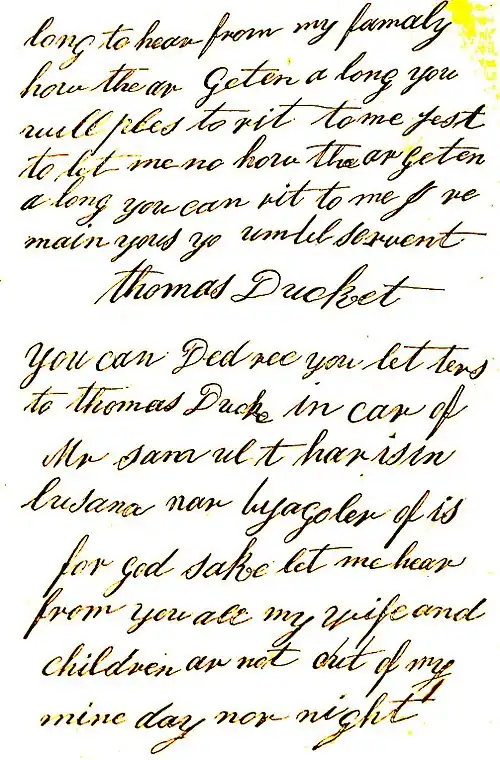 long to hear from my famaly
how the ar geten a long you
will ples to rit to me jest
to let me no how the ar geten
a long you can rit to me I re
main yous yo umbil servent
thomas Ducket
you can Ded rec you let ters
to thomas Ducke in car of
Mr samuelt harisin
lusana nar byagoler of is
for god sake let me hear
from you all my wife and
children ar not out of my
mine day nor night